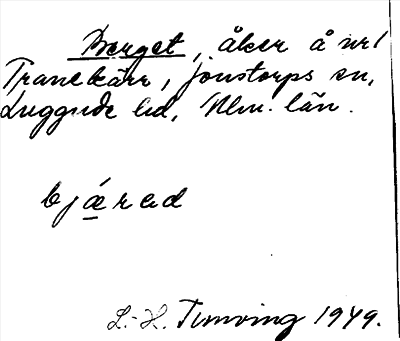 Berget, åker å nr 1
Tranekärr, Jonstorps sn,
Luggude hd, Mlm. län.
bjæred
L.-H. Tunving 1949.